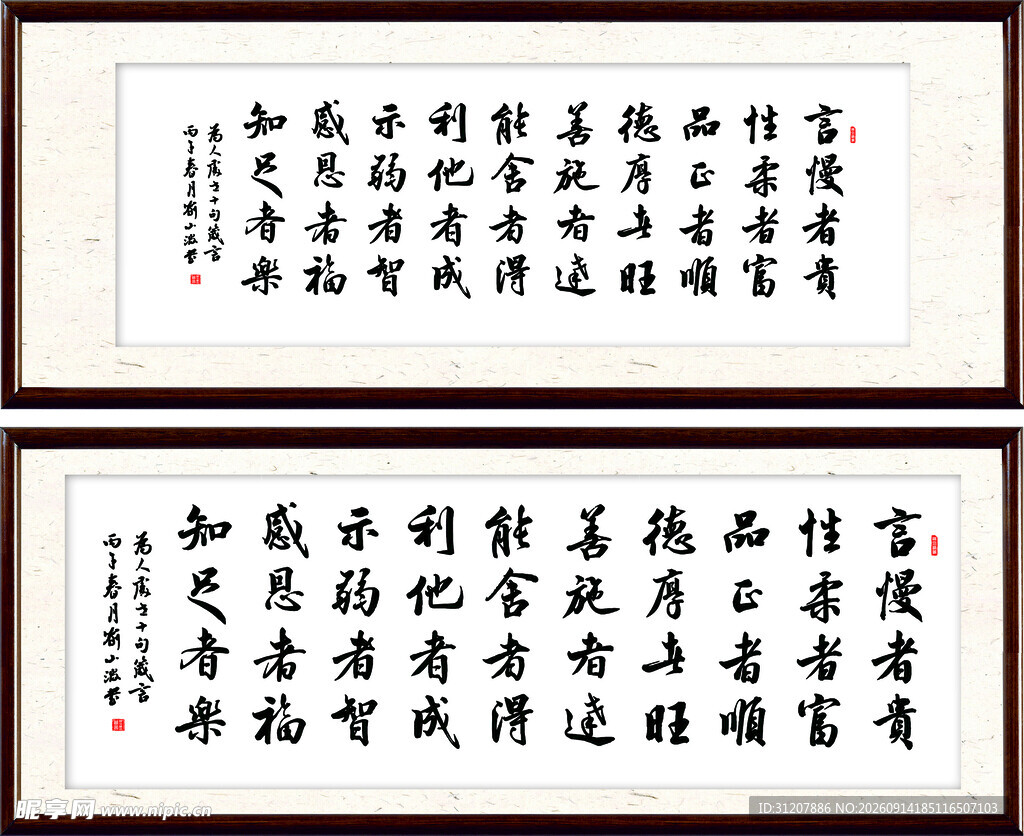 言慢者貴
性柔者富
品正者順
德厚者旺
善施者達
能舍者得
利他者成
示弱者智
感恩者福
知足者樂
为人處世十句箴言
丙子春月
言慢者貴
性柔者富
品正者順
德厚者旺
善施者達
能舍者得
利他者成
示弱者智
感恩者福
知足者樂
为人處世十句箴言
丙子春月
昵享网 www.nipic.cn
ID:31207886 NO:20260914185116507103